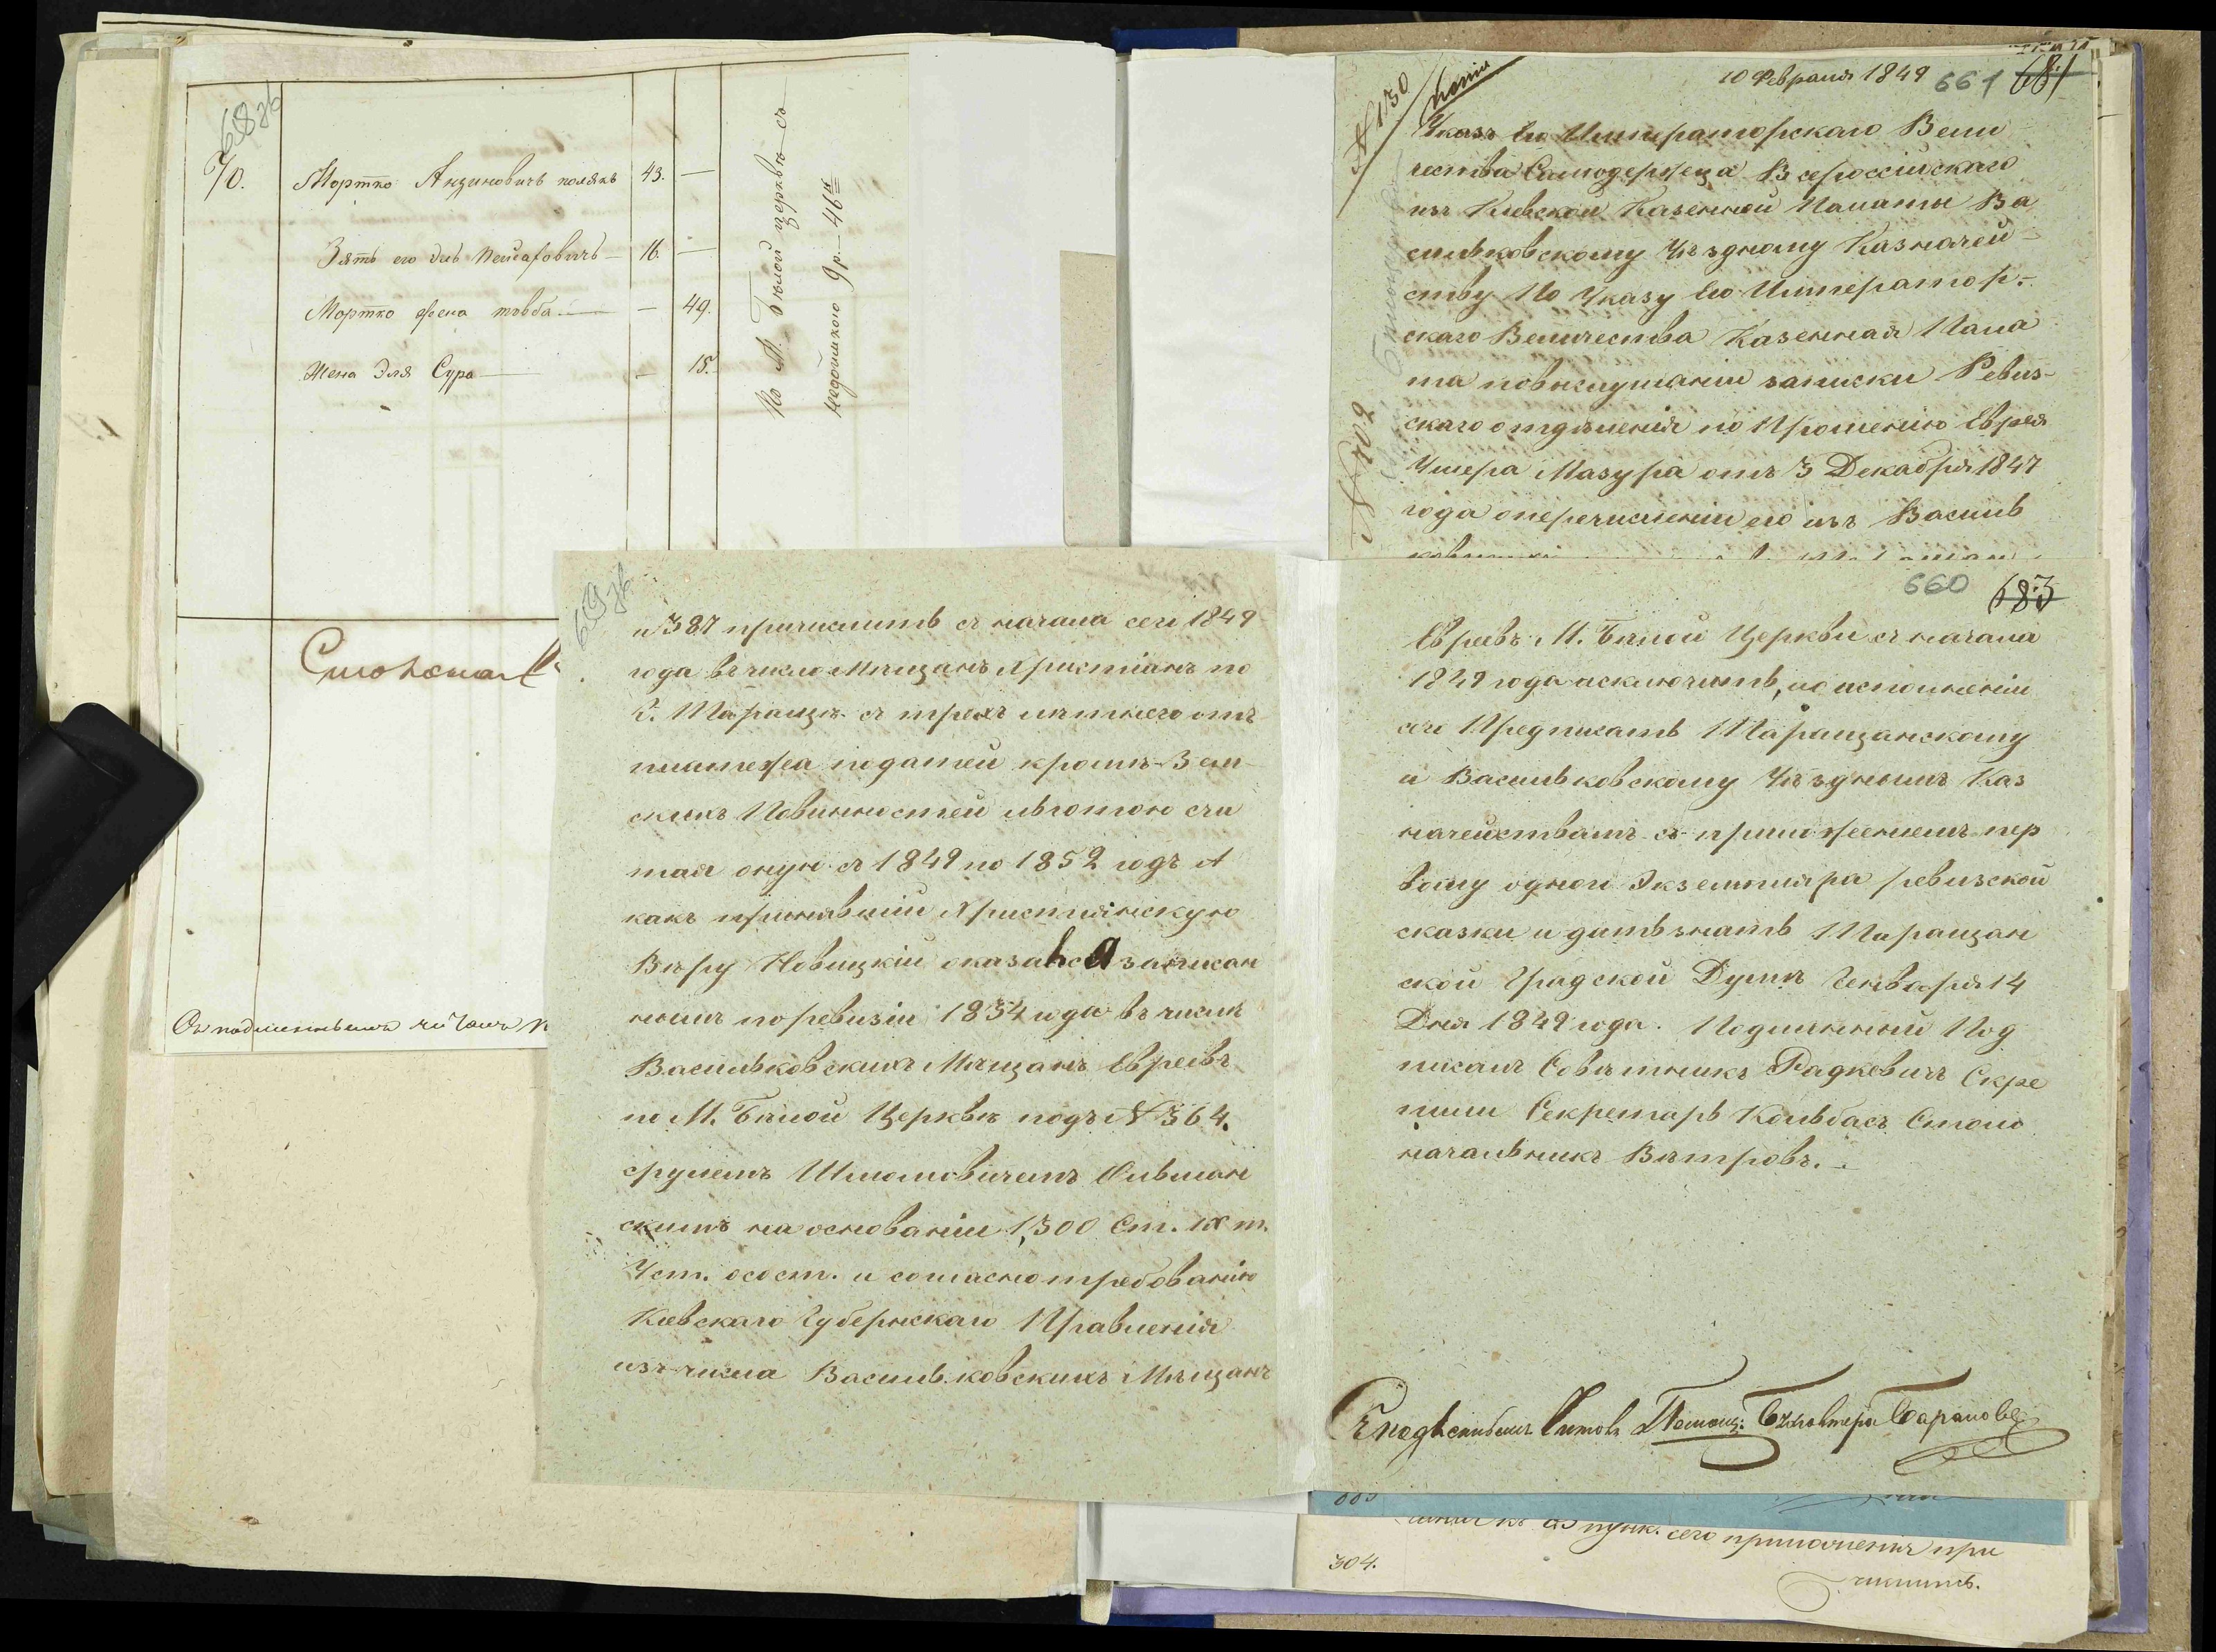 70.
Мортко Анциновичъ полякъ 43. —
Зять его Эль Пейсаховичъ — 16. —
Мортко жена — 49.
Жена Эля Сура — — 15.
По М. Белой церквѣ съ
недоимкою 9 р. 46
10 Февраля 1849 661 681
№ 130
Копія
Указъ Его Императорскаго Вели
чества Самодержеца Всероссійскаго
изъ Кіевской Казенной Палаты Ва
сильковскому Уѣздному Казначей-
ству По Указу Его Император-
скаго Величества Казенная Пала
та повыслушаніи записки Ревиз-
скаго отдѣленія по Прошенію Еврея
Умера Мазура отъ 3 Декабря 1847
года оперечисленіи его изъ Василь
№ 702
и 387 причислить съ начала сего 1849
года въ число Мѣщанъ Христіанъ по
Г. Таращѣ съ трехъ лѣтнего отъ
платежа податей кромѣ Зем-
скихъ Повинностей льготою счи
тая оную съ 1849 по 1852 годъ А
какъ принявшій Христіянскую
Вѣру Новицкій оказался записан
нымъ по ревизіи 1834 года въ числѣ
Васильковскихъ Мѣщанъ Евреевъ
по М. Бѣлой Церквѣ подъ № 364.
срулемъ Шмомовичемъ
скимъ на основаніи 1,300 Ст. IX т.
Уст. о сост. и согласно требованію
Кіевскаго Губернскаго Правленія
изъ числа Васильковскихъ Мѣщанъ
660 683
Евреевъ М. Бѣлой Церкви съ начала
1849 года исключить, по исполненіи
сего Предписать Таращанскому
и Васильковскому Уѣзднымъ Каз
начействамъ съ приложеніемъ пер
вому одного Экземпляра ревизской
сказки и дать знать Таращан
ской Градской Думѣ Генваря 14
Дня 1849 года. Подлинный Под
писалъ Совѣтникъ Радкевичъ Скре
пили Секретарь Кольбасъ Столо
начальникъ Вѣтровъ.
Съ подлиннымъ читалъ Помощ: Бухгалтера Барановъ
Съ подлиннымъ читалъ
304.
пунк. сего приложенія при
числить.